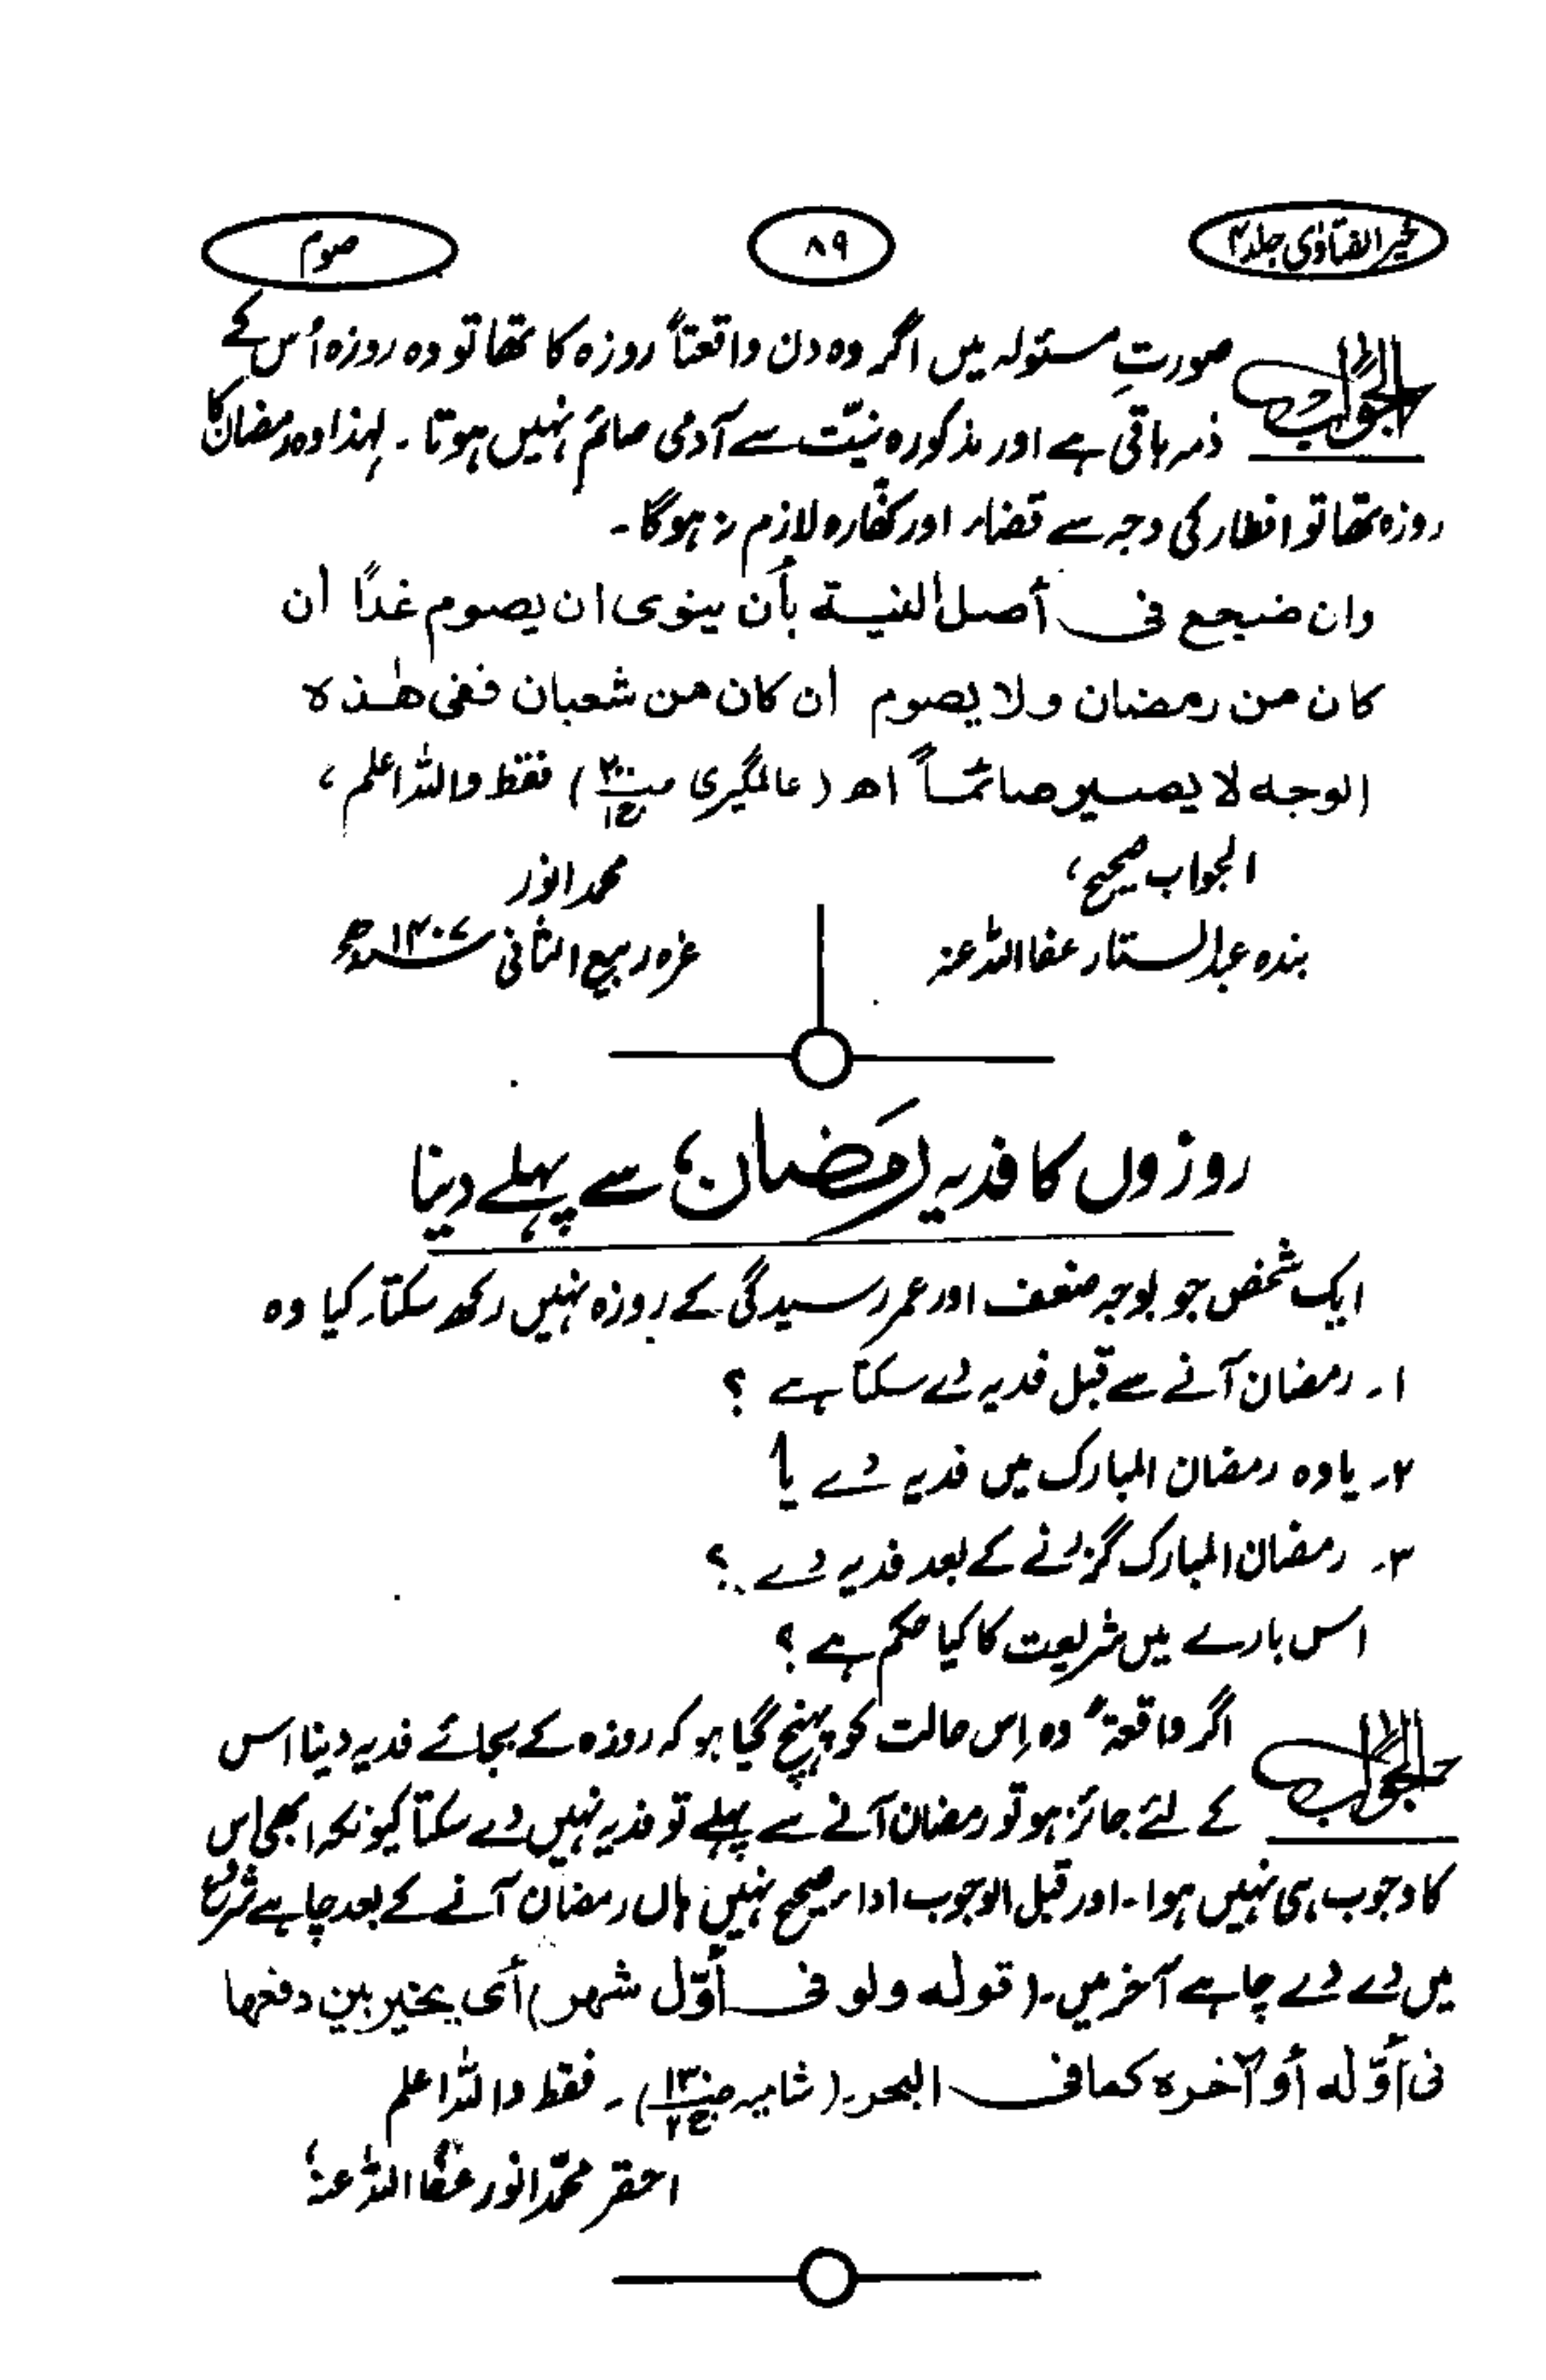 خیر الفتاوٰی جلد ۴
۸۹
صوم
الجواب صورتِ مسئولہ میں اگر وہ دن واقعتاً روزہ کا تھا تو وہ روزہ اُس کے
ذمہ باقی ہے اور مذکورہ نیّت سے آدمی صائم نہیں ہوتا۔ لہذا وہ رمضان کا
روزہ تھا تو افطار کی وجہ سے قضاء اور کفارہ لازم نہ ہوگا۔
وان ضجع فی أصل النیـة بأن ینوی ان یصوم غداً ان
کان من رمضان ولا یصوم ان کان من شعبان ففی ھٰـذہ
الوجہ لا یصیر صائماً اھ (عالمگیری ص۲۰۰ ج۱) فقط واللہ اعلم،
الجواب صحیح،
بندہ عبدالستار عفا اللہ عنہ
محمد انور
غرہ ربیع الثانی ۱۴۰۷ھ
روزوں کا فدیہ رمَضان سے پہلے دینا
ایک شخص جو بوجہ ضعف اور عمر رسیدگی کے روزہ نہیں رکھ سکتا۔ کیا وہ
۱۔ رمضان آنے سے قبل فدیہ دے سکتا ہے ؟
۲۔ یا وہ رمضان المبارک میں فدیہ دے یا
۳۔ رمضان المبارک گزرنے کے بعد فدیہ دے ؟
اس بارے میں شریعت کا کیا حکم ہے ؟
الجواب اگر واقعۃً وہ اِس حالت کو پہنچ گیا ہو کہ روزہ کے بجائے فدیہ دینا اس
کے لئے جائز ہو تو رمضان آنے سے پہلے تو فدیہ نہیں دے سکتا کیونکہ ابھی اس
کا وجوب ہی نہیں ہوا۔ اور قبل الوجوب اداء صحیح نہیں ہاں رمضان آنے کے بعد چاہے شروع
میں دے دے چاہے آخر میں۔ (قولہ ولو فی أوّل شھر) أی یخیر بین دفعھا
فی أوّلہ أو آخرہ کما فی البحر۔ (شامیہ ص۱۳۰ ج۲)۔ فقط واللہ اعلم
احقر محمّد انور عفا اللہ عنہ